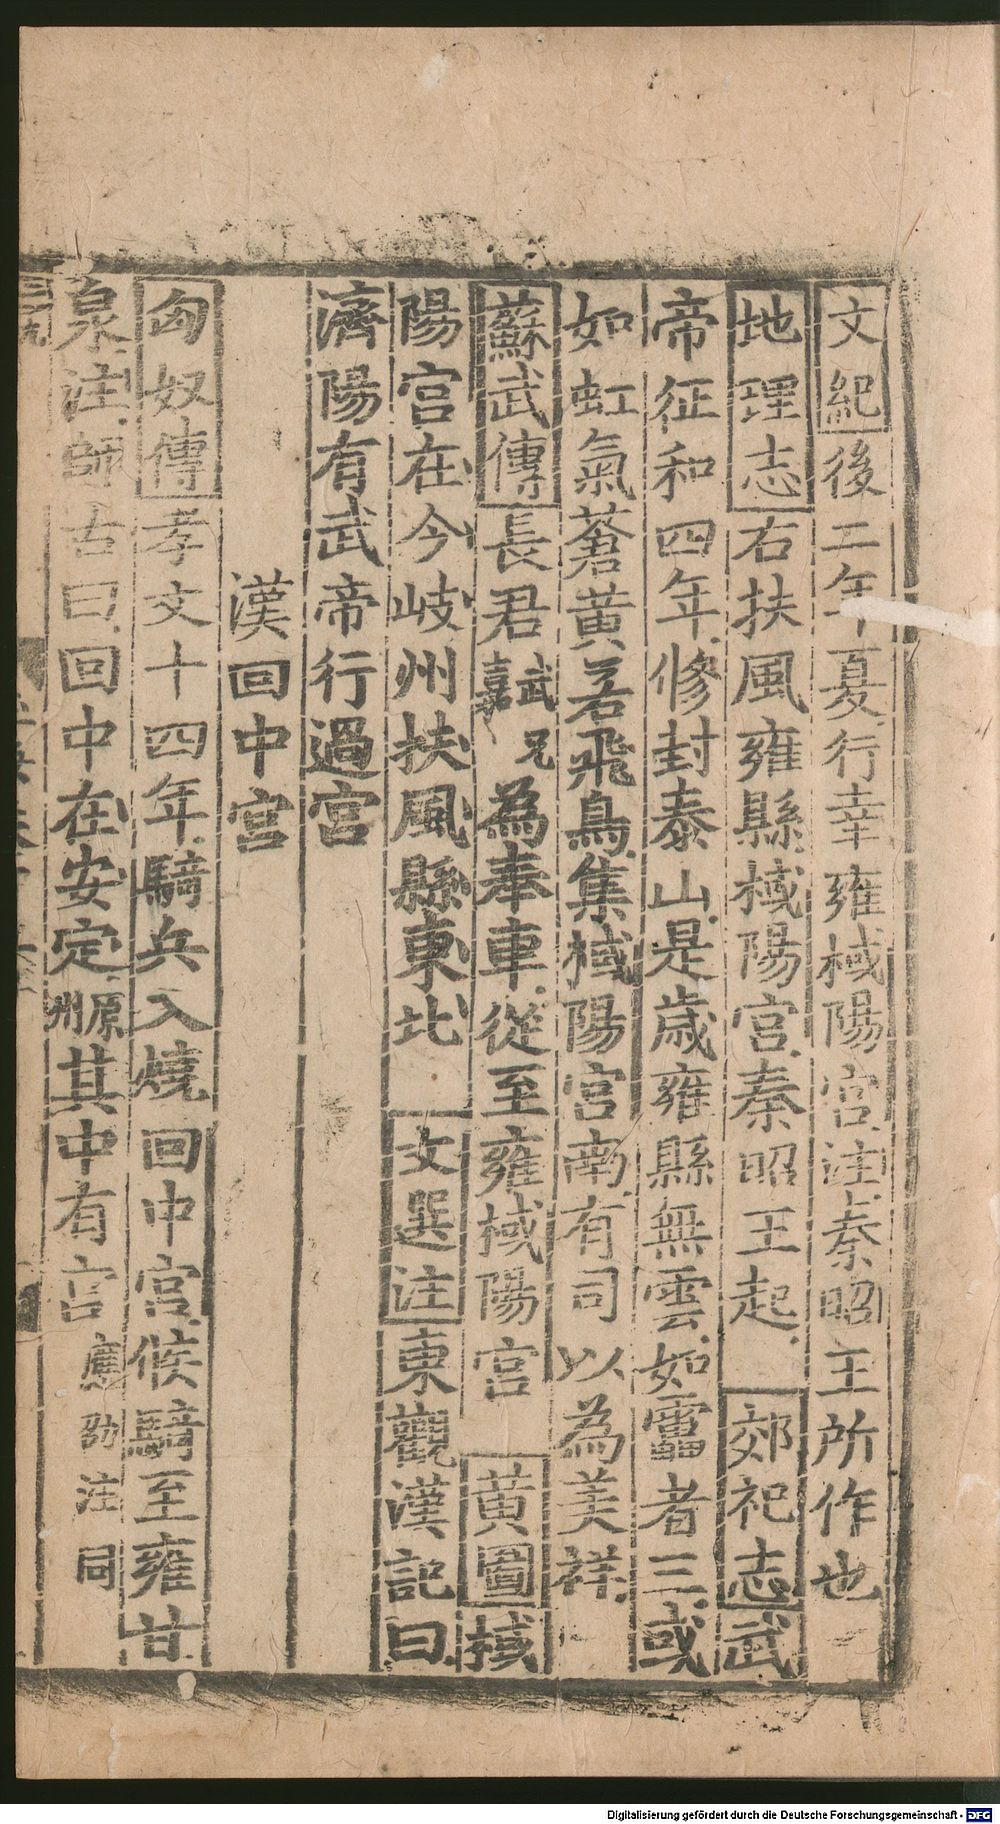 文紀後二年夏行幸雍棫陽宮注秦昭王所作也
地理志右扶風雍縣棫陽宮秦昭王起 郊祀志武
帝征和四年修封泰山是歲雍縣無雲如靁者三或
如虹氣蒼黃若飛鳥集棫陽宮南有司以為美祥
蘇武傳長君武兄嘉為奉車從至雍棫陽宮 黃圖棫
陽宮在今岐州扶風縣東北 文選注東觀漢記曰
濟陽有武帝行過宮
漢回中宮
匈奴傳孝文十四年騎兵入燒回中宮候騎至雍甘
泉注師古曰回中在安定原州其中有宮應劭注同
Digitalisierung gefördert durch die Deutsche Forschungsgemeinschaft - DFG